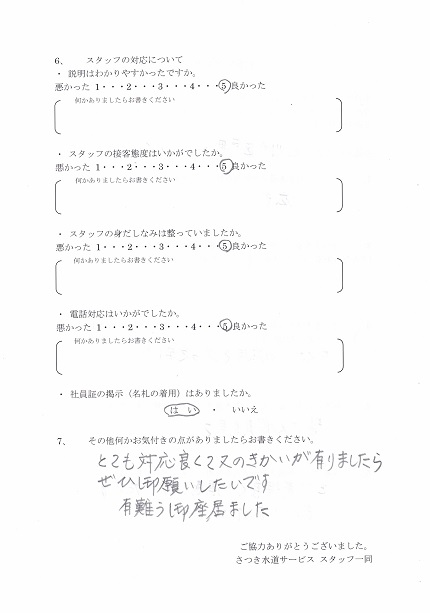 6、 スタッフの対応について
・ 説明はわかりやすかったですか。
悪かった 1・・・2・・・3・・・4・・・5良かった
何かありましたらお書きください
・ スタッフの接客態度はいかがでしたか。
悪かった 1・・・2・・・3・・・4・・・5良かった
何かありましたらお書きください
・ スタッフの身だしなみは整っていましたか。
悪かった 1・・・2・・・3・・・4・・・5良かった
何かありましたらお書きください
・ 電話対応はいかがでしたか。
悪かった 1・・・2・・・3・・・4・・・5良かった
何かありましたらお書きください
・ 社員証の掲示（名札の着用）はありましたか。
はい ・ いいえ
7、 その他何かお気付きの点がありましたらお書きください。
とても対応良くて又のきかいが有りましたら
ぜひ御願いしたいです
有難う御座居ました
ご協力ありがとうございました。
さつき水道サービス スタッフ一同